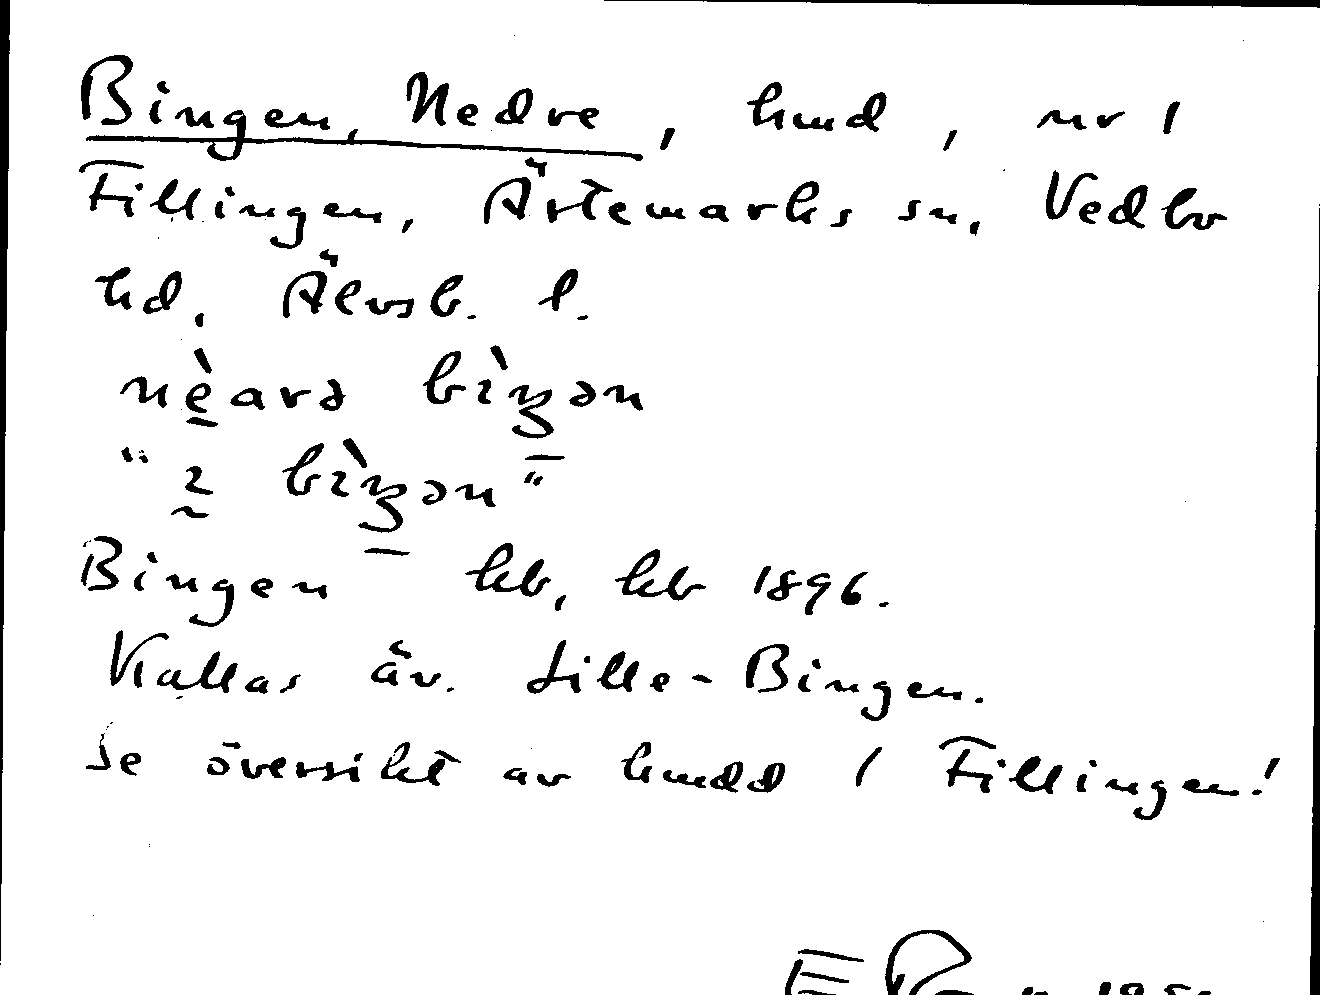 Bingen, Nedre, hmd, nr 1
Fillingen, Ärtemarks sn, Vedbo
hd, Älvsb. l.
nèarə bìŋən
"ı bìŋən"
Bingen hb, kb 1896.
Kallas äv. Lille-Bingen.
Se översikt av hmdd 1 Fillingen!